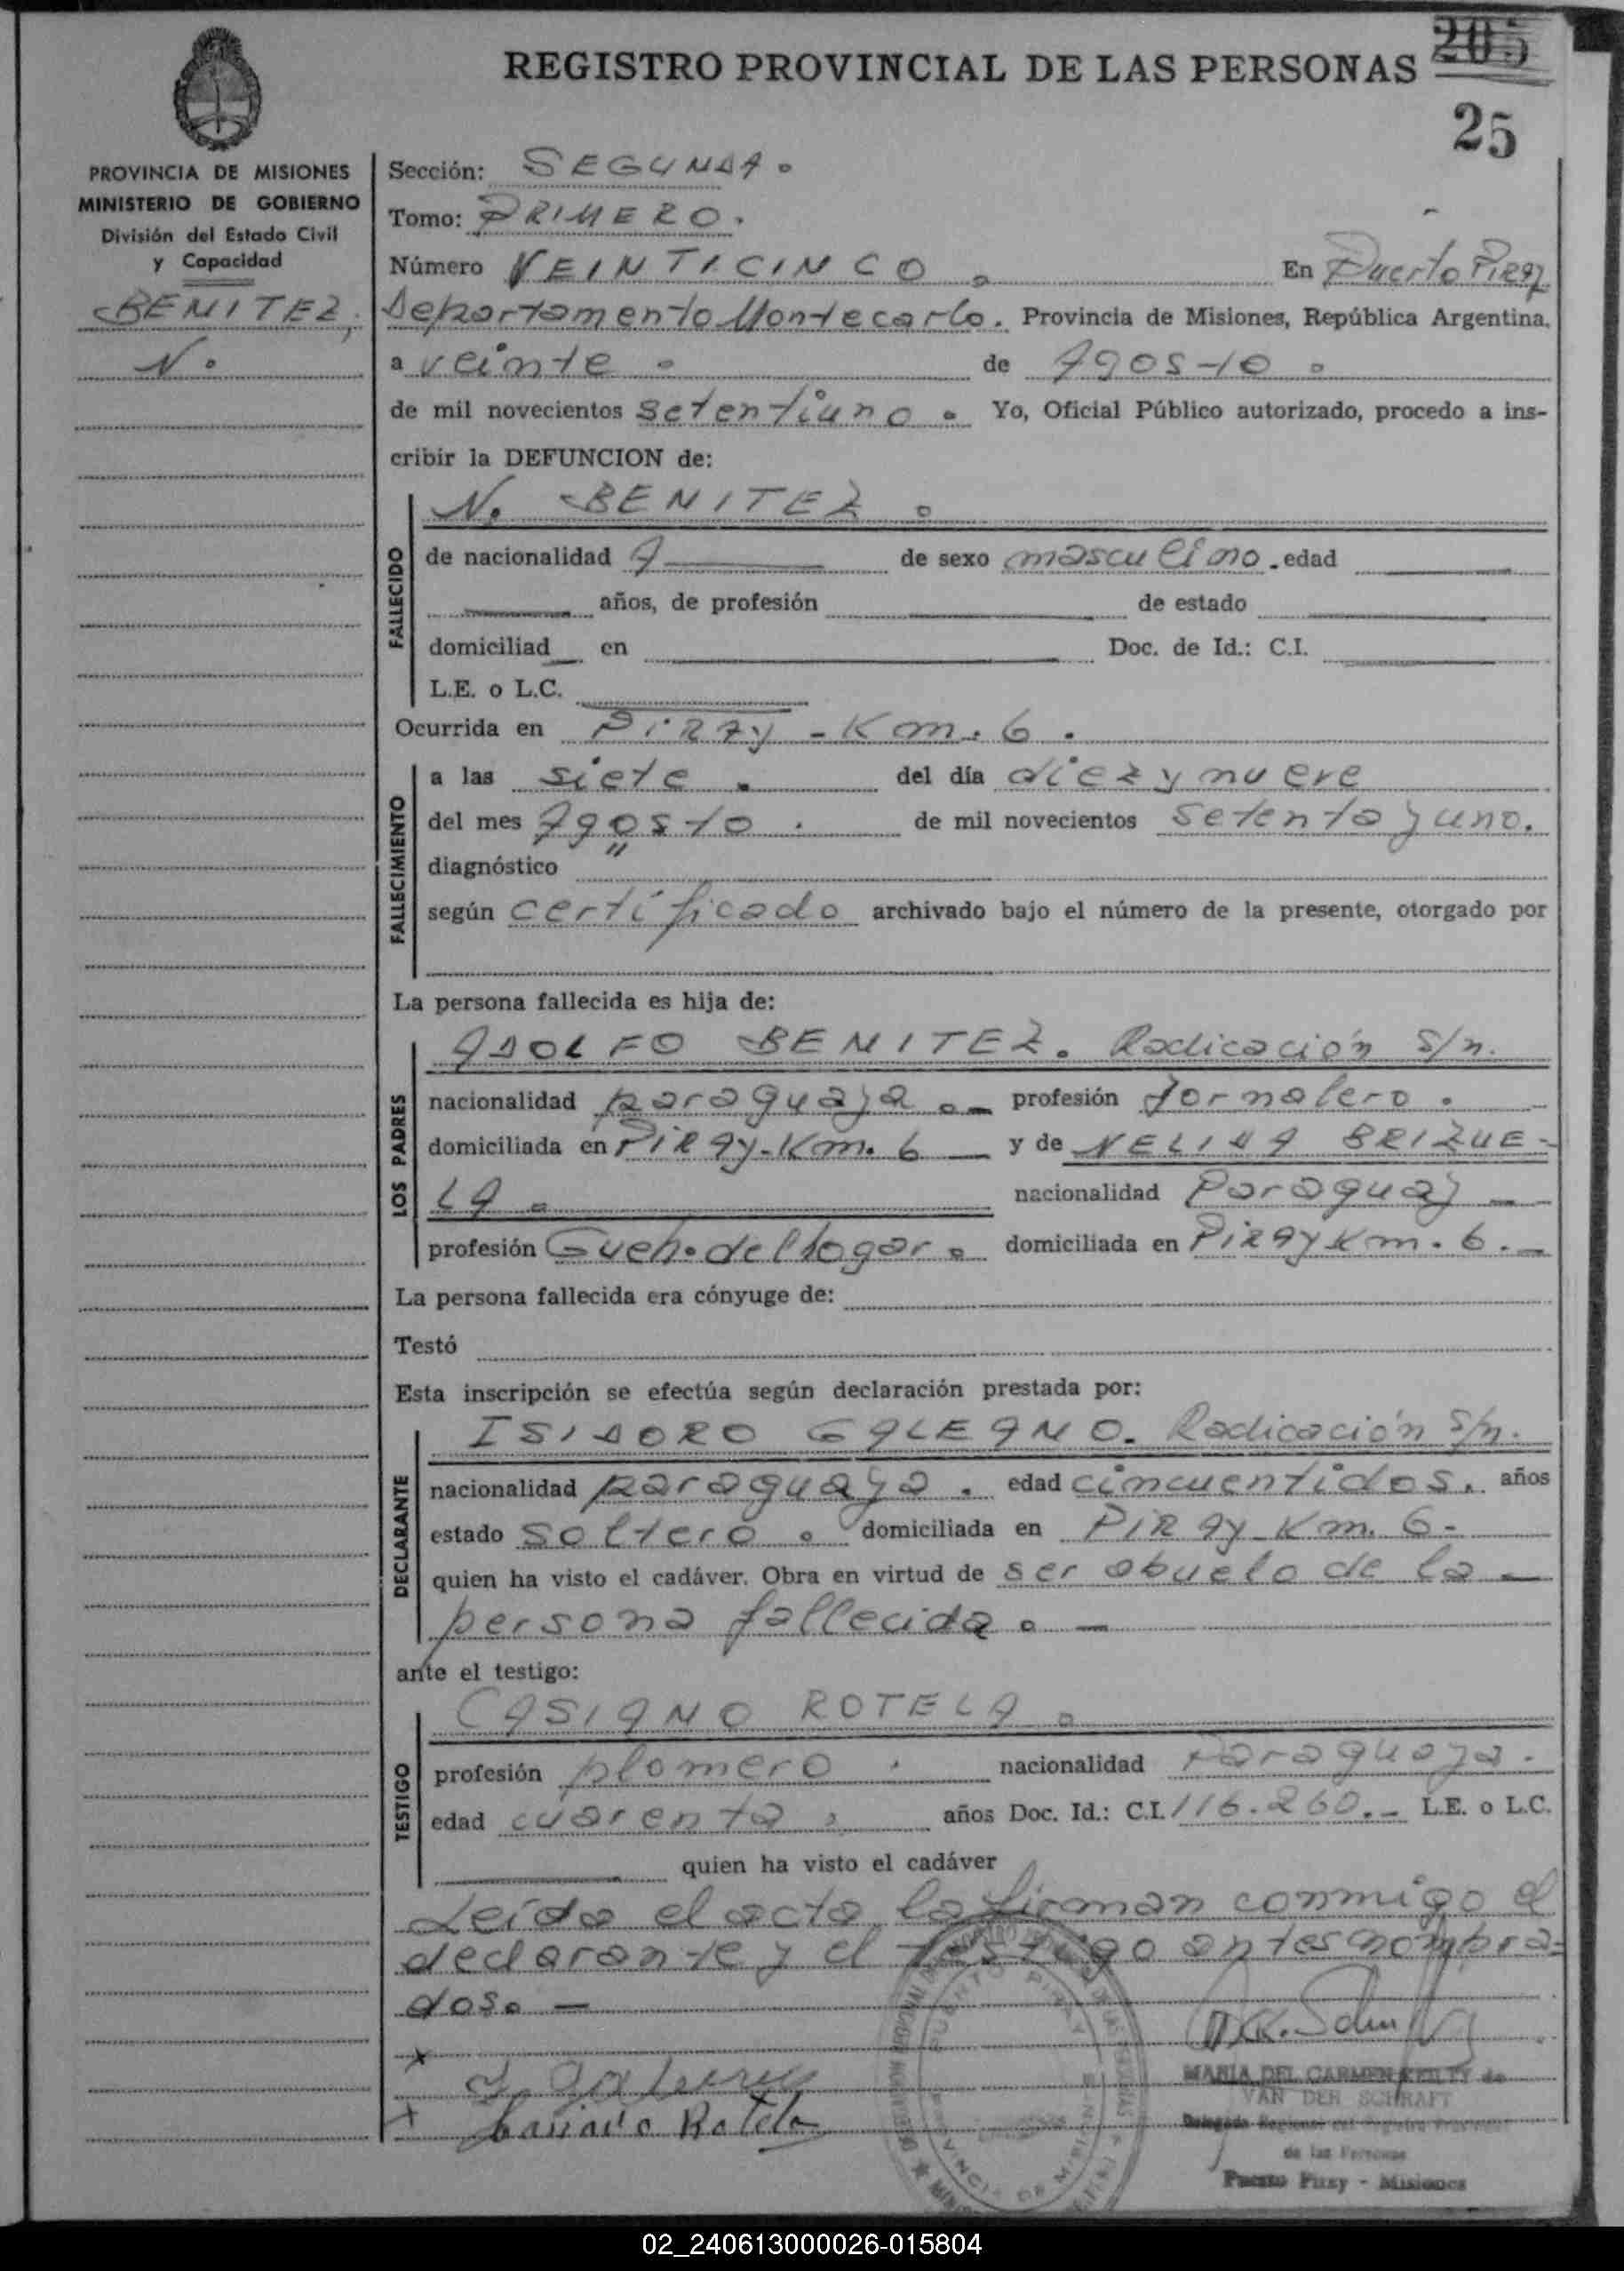 REGISTRO PROVINCIAL DE LAS PERSONAS
205
25
PROVINCIA DE MISIONES
MINISTERIO DE GOBIERNO
División del Estado Civil
y Capacidad
BENITEZ,
N.
Sección: SEGUNDA.
Tomo: PRIMERO.
Número VEINTICINCO. En Puerto Piray
Departamento Montecarlo. Provincia de Misiones, República Argentina,
a veinte. de Agosto.
de mil novecientos setentiuno. Yo, Oficial Público autorizado, procedo a ins-
cribir la DEFUNCION de:
FALLECIDO
N. BENITEZ.
de nacionalidad A de sexo masculino. edad
años, de profesión de estado
domiciliad en Doc. de Id.: C.I.
L.E. o L.C.
Ocurrida en PiRAy - Km. 6.
FALLECIMIENTO
a las siete. del día diez y nueve
del mes Agosto. de mil novecientos setenta y uno.
diagnóstico "
según certificado archivado bajo el número de la presente, otorgado por
La persona fallecida es hija de:
LOS PADRES
ADOLFO BENITEZ. Radicación s/n.
nacionalidad paraguaya.- profesión Jornalero.
domiciliada en PiRAy-Km. 6 y de NELIDA BRIZUE-
LA. nacionalidad Paraguay
profesión Queh. del hogar. domiciliada en PiRAy Km. 6.-
La persona fallecida era cónyuge de:
Testó
Esta inscripción se efectúa según declaración prestada por:
DECLARANTE
ISIDORO GALEANO. Radicación s/n.
nacionalidad paraguaya. edad cincuentidos. años
estado soltero. domiciliada en PIRAy Km. 6-
quien ha visto el cadáver. Obra en virtud de ser abuelo de la -
persona fallecida. -
ante el testigo:
TESTIGO
CASIANO ROTELA.
profesión plomero. nacionalidad Paraguaya.
edad cuarenta, años Doc. Id.: C.I. 116.260.- L.E. o L.C.
quien ha visto el cadáver
Leída el acta, la firman conmigo el
declarante y el testigo antes nombra-
dos. -
x
x Casiano Rotela
MARIA DEL CARMEN de
VAN DER SCHRAFT
Delegada Regional del Registro Provincial
de las Personas
Puerto Piray - Misiones
PUERTO PIRAY
PROVINCIA DE MISIONES
02_240613000026-015804